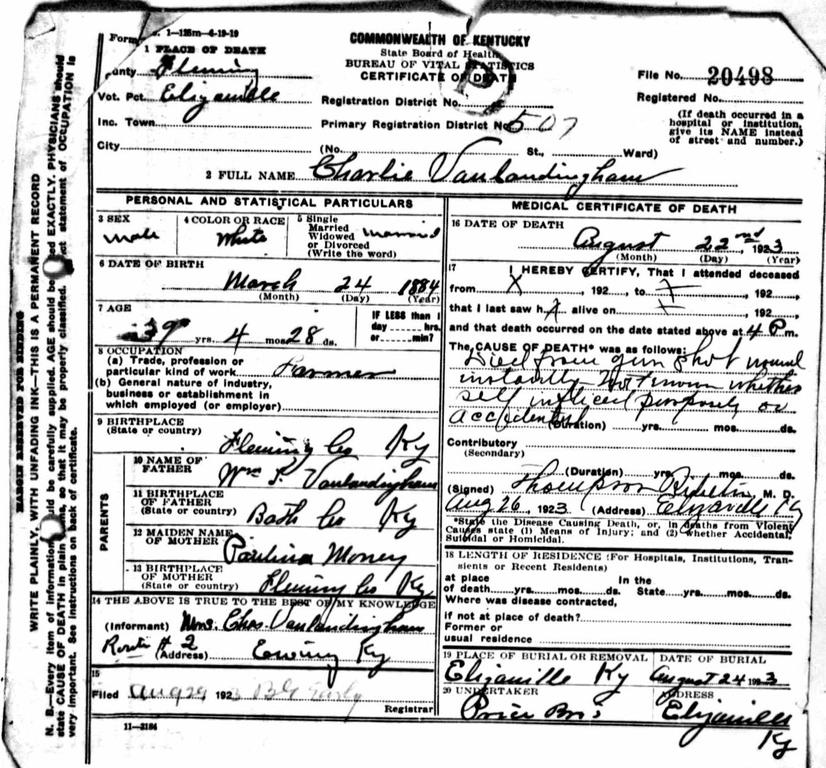 Form V. S. 1—125m—4-19-19
COMMONWEALTH OF KENTUCKY
State Board of Health
BUREAU OF VITAL STATISTICS
CERTIFICATE OF DEATH
1 PLACE OF DEATH
County Fleming
Vot. Pct. Elizaville
Inc. Town
City
Registration District No.
Primary Registration District No. 507
(No. St., Ward)
File No. 20498
Registered No.
(If death occurred in a
hospital or institution,
give its NAME instead
of street and number.)
2 FULL NAME Charlie Vanlandingham
PERSONAL AND STATISTICAL PARTICULARS
3 SEX
male
4 COLOR OR RACE
White
5 Single
Married
Widowed
or Divorced
(Write the word)
married
6 DATE OF BIRTH
March 24 1884
(Month) (Day) (Year)
7 AGE
39 yrs. 4 mos. 28 ds.
IF LESS than 1
day hrs.
or min?
8 OCCUPATION
(a) Trade, profession or
particular kind of work Farmer
(b) General nature of industry,
business or establishment in
which employed (or employer)
9 BIRTHPLACE
(State or country)
Fleming Co Ky
PARENTS
10 NAME OF
FATHER
Wm T. Vanlandingham
11 BIRTHPLACE
OF FATHER
(State or country)
Bath Co Ky
12 MAIDEN NAME
OF MOTHER
Paulina Money
13 BIRTHPLACE
OF MOTHER
(State or country)
Fleming Co Ky
14 THE ABOVE IS TRUE TO THE BEST OF MY KNOWLEDGE
(Informant) Mrs. Chas. Vanlandingham
Route # 2
(Address) Ewing Ky
15
Filed Aug 29 192
Registrar
11—3184
MEDICAL CERTIFICATE OF DEATH
16 DATE OF DEATH
August 22nd, 1923
(Month) (Day) (Year)
17 I HEREBY CERTIFY, That I attended deceased
from X, 192, to X, 192,
that I last saw h alive on, 192,
and that death occurred on the date stated above at 4 P m.
The CAUSE OF DEATH* was as follows:
Died from gun shot wound
instantly Not known whether
self inflicted purposely or
accidental
(Duration) yrs. mos. ds.
Contributory
(Secondary)
(Duration) yrs. mos. ds.
(Signed) Thompson M. D.
Aug 26, 1923 (Address) Elizaville Ky
*State the Disease Causing Death, or, in deaths from Violent
Causes state (1) Means of Injury; and (2) whether Accidental,
Suicidal or Homicidal.
18 LENGTH OF RESIDENCE (For Hospitals, Institutions, Tran-
sients or Recent Residents)
at place In the
of death yrs. mos. ds. State yrs. mos. ds.
Where was disease contracted,
if not at place of death?
Former or
usual residence
19 PLACE OF BURIAL OR REMOVAL
Elizaville Ky
DATE OF BURIAL
August 24 1923
20 UNDERTAKER
Price Bros
ADDRESS
Elizaville
Ky
MARGIN RESERVED FOR BINDING
WRITE PLAINLY, WITH UNFADING INK—THIS IS A PERMANENT RECORD
N. B.—Every item of information should be carefully supplied. AGE should be stated EXACTLY. PHYSICIANS should
state CAUSE OF DEATH in plain terms, so that it may be properly classified. Exact statement of OCCUPATION is
very important. See instructions on back of certificate.